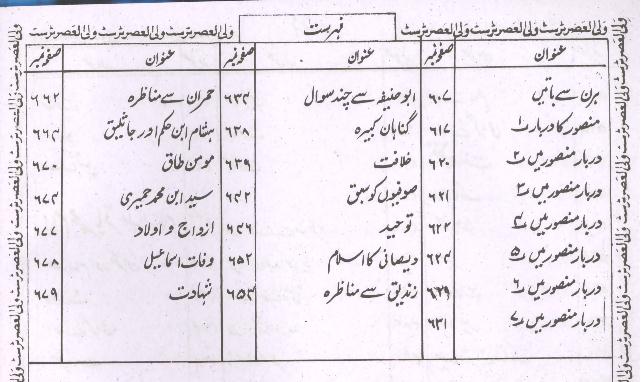 فہرست
ولی العصر ٹرسٹ ولی العصر ٹرسٹ ولی العصر ٹرسٹ ولی العصر ٹرسٹ
عنوان صفحہ نمبر عنوان صفحہ نمبر عنوان صفحہ نمبر
ہرن سے باتیں ۶۰۷ ابو حنیفہ سے چند سوال ۶۳۳ حمران سے مناظرہ ۶۶۲
منصور کا دربار ۱ ۶۱۷ گناہان کبیرہ ۶۳۸ ہشام ابن حکم اور جاثلیق ۶۶۳
دربار منصور میں ۲ ۶۲۰ خلافت ۶۳۹ مومن طاق ۶۷۰
دربار منصور میں ۳ ۶۲۱ صوفیوں کو سبق ۶۴۲ سید ابن محمد حمیری ۶۷۴
دربار منصور میں ۴ ۶۲۲ توحید ۶۴۶ ازواج و اولاد ۶۷۷
دربار منصور میں ۵ ۶۲۴ دیصانی کا اسلام ۶۵۲ وفات اسماعیل ۶۷۸
دربار منصور میں ۶ ۶۲۹ زندیق سے مناظرہ ۶۵۴ شہادت ۶۷۹
دربار منصور میں ۷ ۶۳۱